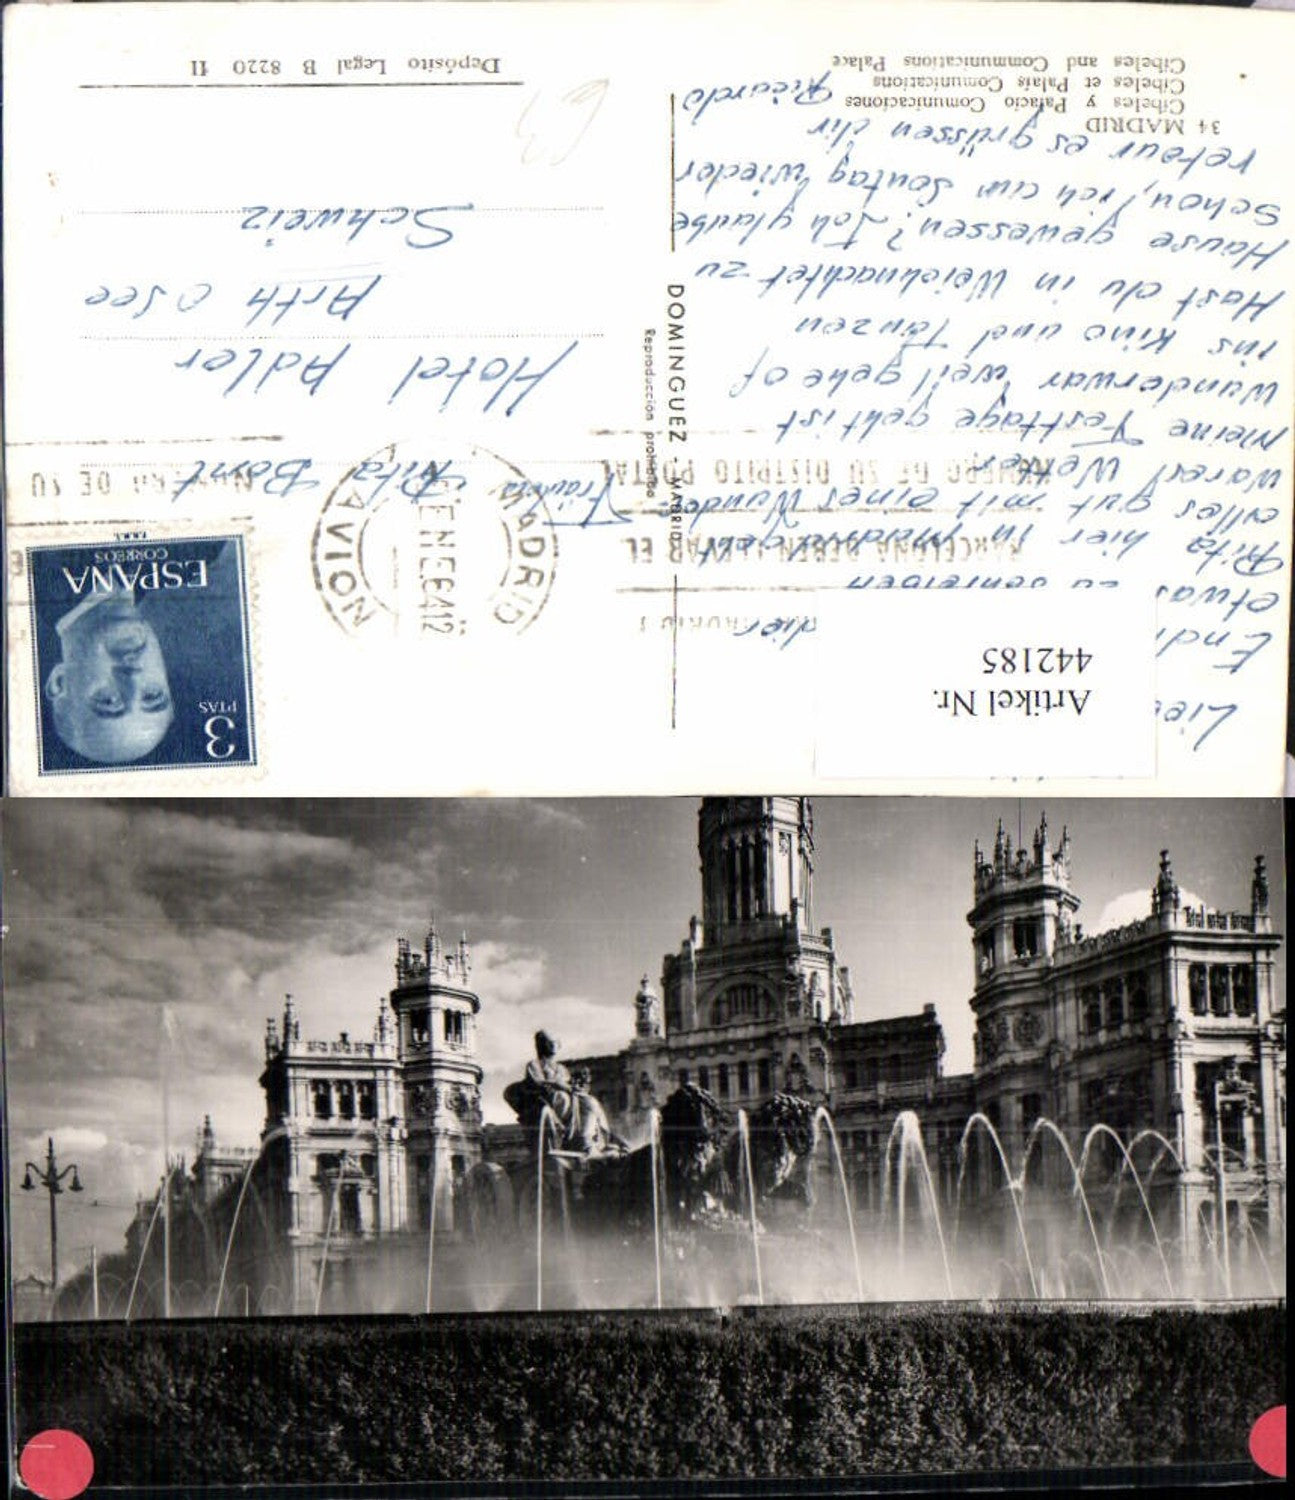 Artikel Nr.
442185
Endl
etwas zu schreiben
Rita hier in Madrid geht
alles gut mit eines Wunder
wares Wetter
Meine Festtage geht ist
Wunderwar weil gehe of
ins Kino und Tanzen
Hast du in Weichnachtet zu
Hause gewessen? Ich glaube
schon, ich am Sontag wieder
retour es grüssen dir
Ricardo
34 MADRID
Cibeles y Palacio Comunicaciones
Cibeles et Palais Comunications
Cibeles and Communications Palace
DOMINGUEZ - MADRID
Reproducción prohibida
BARCELONA DEBEN LLEVAR EL
NUMERO DE SU DISTRITO POSTAL
NUMERO DE SU
MADRID
AVION
ENE 64 12
3
PTAS
ESPAÑA
CORREOS
F.N.M.T.
Fräulein Rita Bont
Hotel Adler
Arth a See
Schweiz
Depósito Legal B 8220 II
63